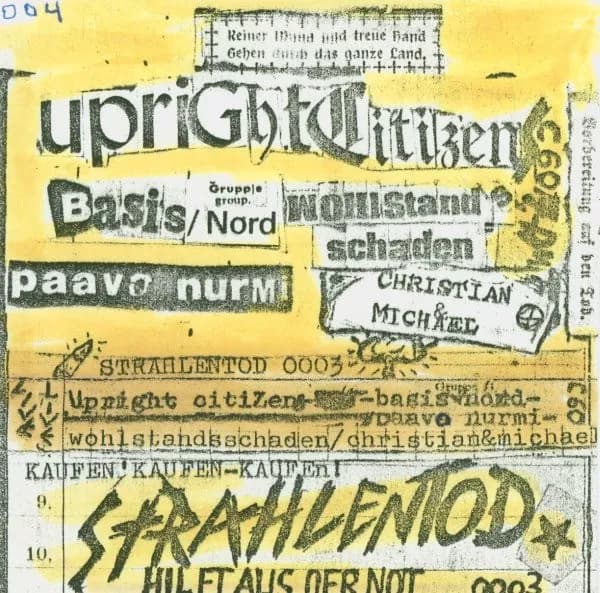 004
Reiner Mund und treue Hand
Gehen durch das ganze Land.
upriGhtCitizenS
Basis/Nord
Gruppe
group.
Wohlstands
schaden
paavo nurmi
CHRISTIAN
&
MICHAEL
Vorbereitung auf den Tod.
STRAHLENTOD 0003
Upright citiZens -basis nord-
Gruppe
/paavo nurmi-
wohlstandsschaden/christian&michael
C60
KAUFEN KAUFEN-KAUFEn!
9.
STRAHLENTOD
10.
HILFT AUS DER NOT 0003